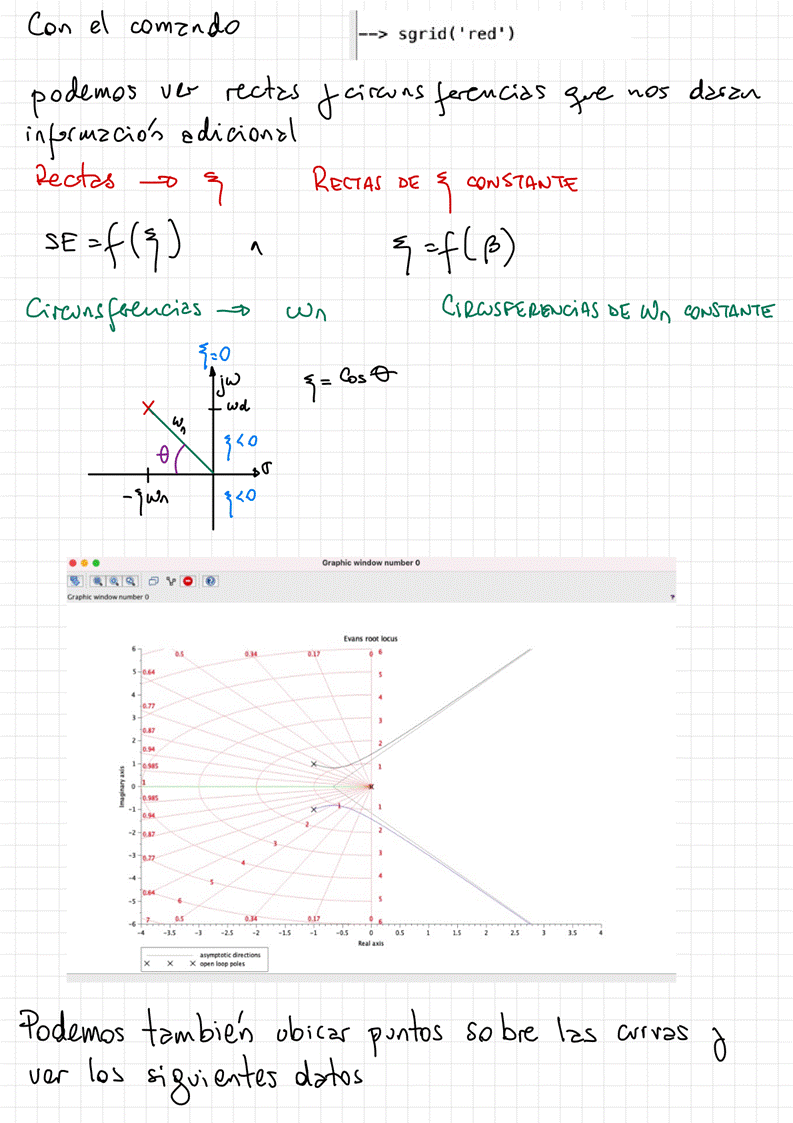 Con el comando
--> sgrid('red')
podemos ver rectas y circunsferencias que nos daran
información adicional
Rectas → ξ RECTAS DE ξ CONSTANTE
SE = f(ξ) ∧ ξ = f(β)
Circunsferencias → ωn CIRCUSFERENCIAS DE Wn CONSTANTE
ξ=0
jω
ξ = Cos θ
ωd
ωn
θ
ξ<0
σ
-ξωn
ξ<0
Graphic window number 0
Graphic window number 0
?
Evans root locus
6
0.5
0.34
0.17
0
6
5
0.64
5
4
4
0.77
3
3
0.87
2
2
0.94
1
0.985
1
0
1
-1
0.985
1
1
-2
0.94
2
2
0.87
-3
3
3
0.77
-4
4
4
-5
0.64
5
5
6
-6
7
0.5
0.34
0.17
0
6
Imaginary axis
-4 -3.5 -3 -2.5 -2 -1.5 -1 -0.5 0 0.5 1 1.5 2 2.5 3 3.5 4
Real axis
asymptotic directions
open loop poles
Podemos también ubicar puntos sobre las curvas y
ver los siguientes datos